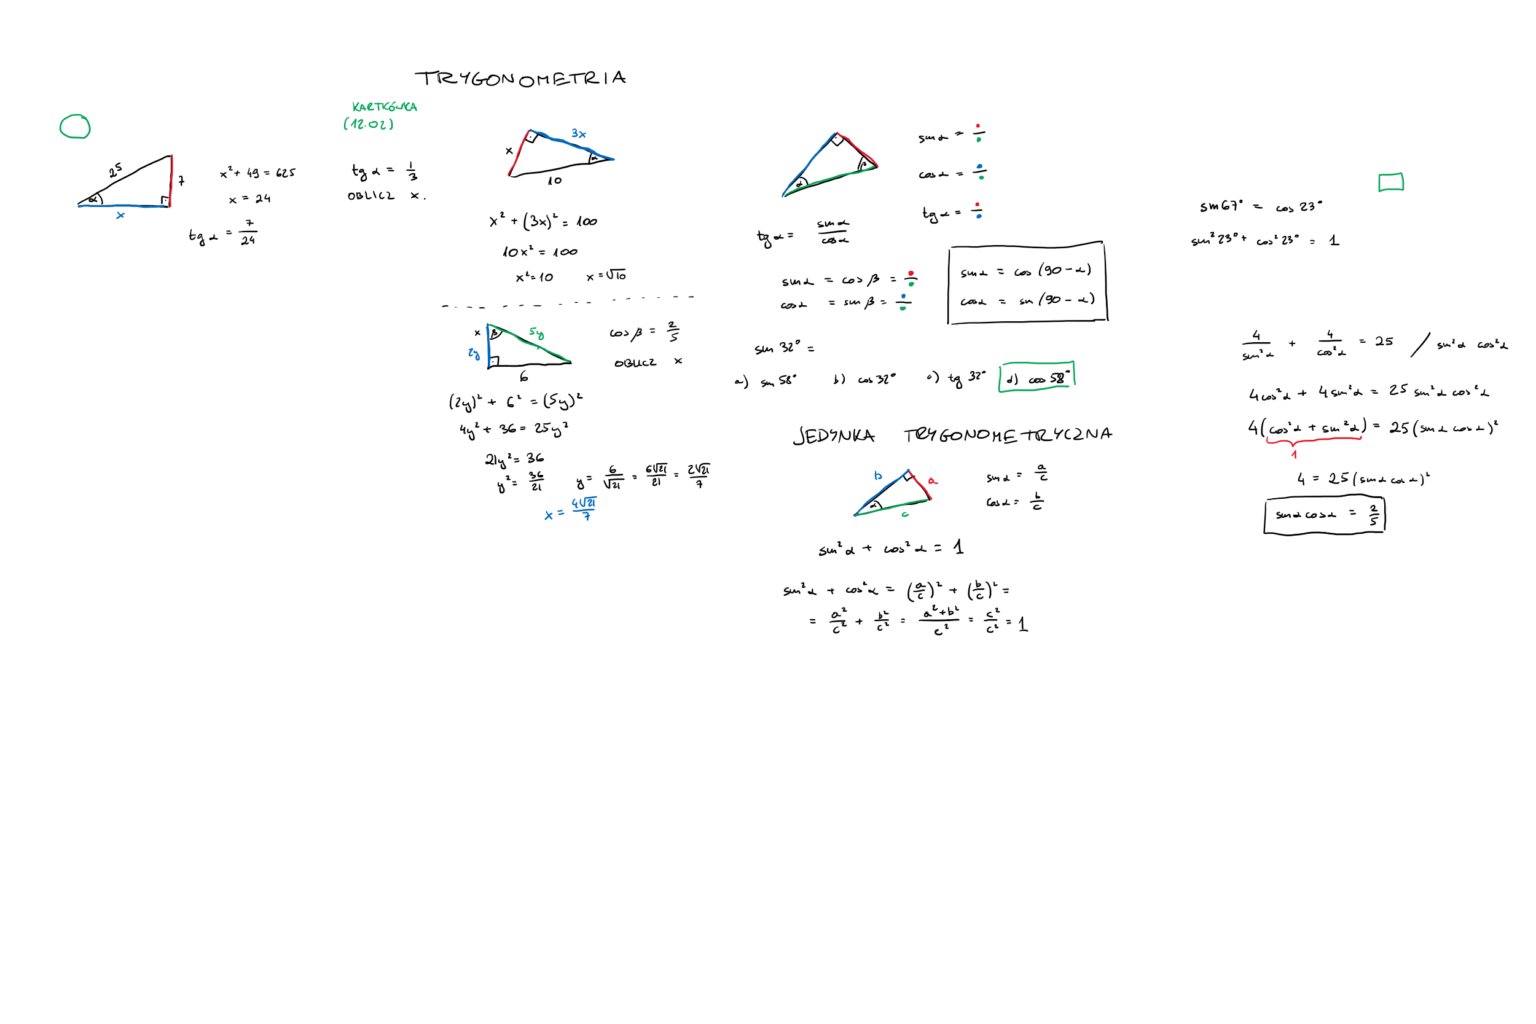 TRYGONOMETRIA
KARTKÓWKA
(12.02)
25
7
α
x
x² + 49 = 625
x = 24
tg α = 7/24
tg α = 1/3
OBLICZ x.
x
3x
α
10
x² + (3x)² = 100
10x² = 100
x² = 10 x = √10
x
β
5y
2y
6
cos β = 2/5
OBLICZ x
(2y)² + 6² = (5y)²
4y² + 36 = 25y²
21y² = 36
y² = 36/21 y = 6/√21 = 6√21/21 = 2√21/7
x = 4√21/7
α
β
sin α = •/•
cos α = •/•
tg α = •/•
tg α = sin α/cos α
sin α = cos β = •/•
cos α = sin β = •/•
sin α = cos (90 - α)
cos α = sin (90 - α)
sin 32° =
a) sin 58° b) cos 32° c) tg 32° d) cos 58°
JEDYNKA TRYGONOMETRYCZNA
b
a
α
c
sin α = a/c
cos α = b/c
sin² α + cos² α = 1
sin² α + cos² α = (a/c)² + (b/c)² =
= a²/c² + b²/c² = a²+b²/c² = c²/c² = 1
sin 67° = cos 23°
sin² 23° + cos² 23° = 1
4/sin² α + 4/cos² α = 25 / sin² α cos² α
4 cos² α + 4 sin² α = 25 sin² α cos² α
4(cos² α + sin² α) = 25(sin α cos α)²
1
4 = 25(sin α cos α)²
sin α cos α = 2/5